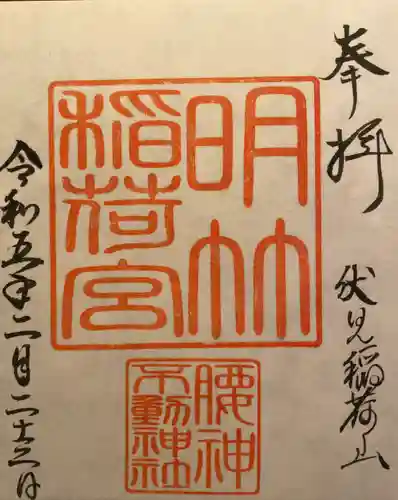 奉拝
伏見稲荷山
明竹
稲荷宮
腰神
不動神社
令和五年二月二十三日